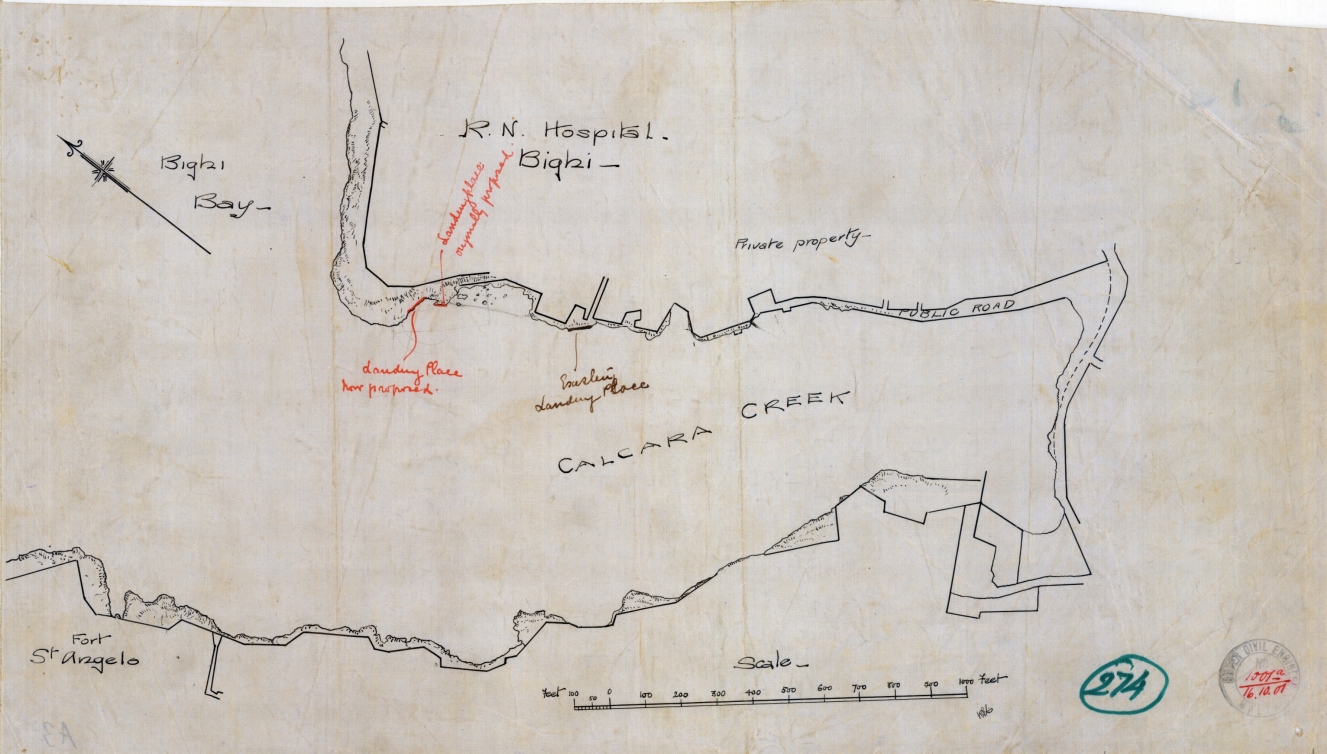 R. N. Hospital.
Bighi
Bighi
Bay
Landing place
originally proposed.
Private property
PUBLIC ROAD
Landing Place
now proposed.
Existing
Landing Place
CALCARA CREEK
Fort
St Angelo
Scale
Feet 100 50 0 100 200 300 400 500 600 700 800 900 1000 Feet
274
16.10.01
A3